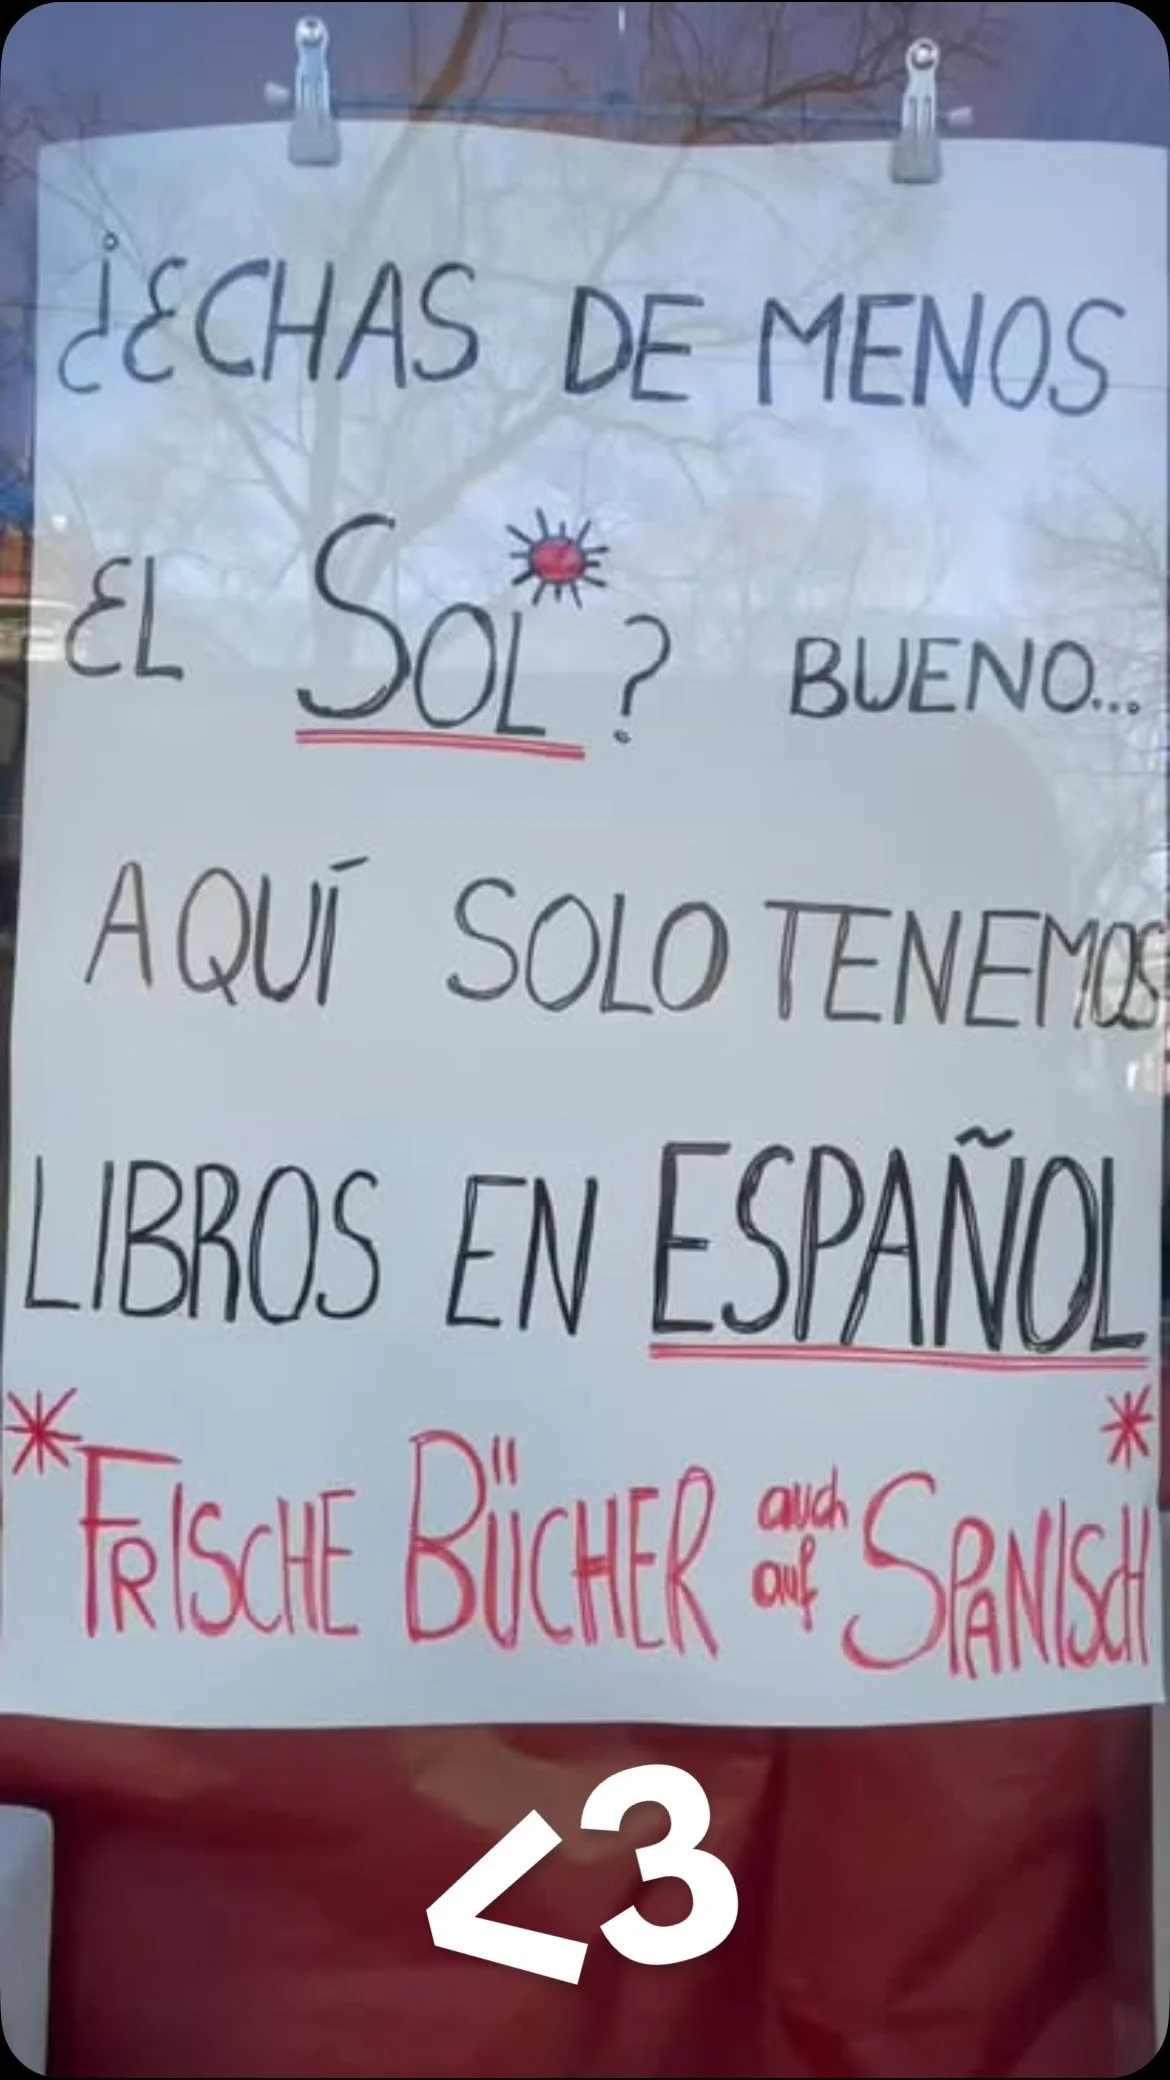 ¿ECHAS DE MENOS
EL SOL? BUENO...
AQUÍ SOLO TENEMOS
LIBROS EN ESPAÑOL
*FRISCHE BÜCHER auch auf SPANISCH*
<3